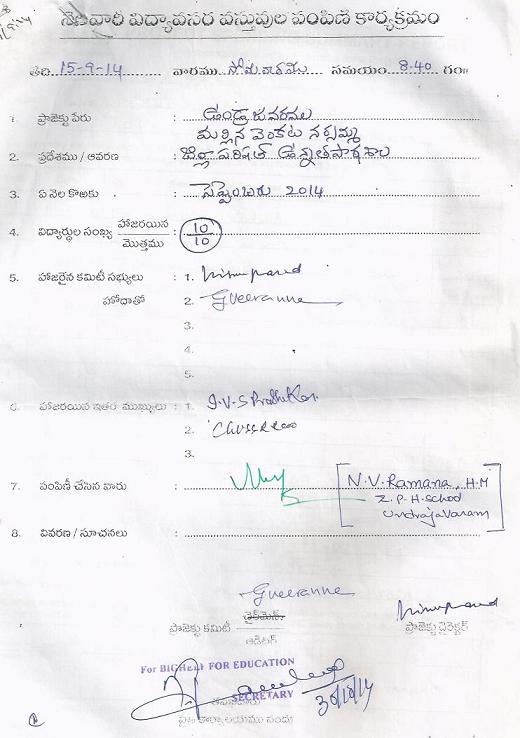 శనివారి విద్యావసర వస్తువుల పంపిణి కార్యక్రమం
తేది 15-9-14 వారము సోమవారము సమయం 8.40 గం॥
1. ప్రాజెక్టు పేరు : ఉండ్రాజవరము
మల్లిన వెంకట నర్సమ్మ
2. ప్రదేశము / ఆవరణ : జిల్లా పరిషత్ ఉన్నత పాఠశాల
3. ఏ నెల కొఱకు : సెప్టెంబరు 2014
4. విద్యార్థుల సంఖ్య హాజరయిన / మొత్తము : 10/10
5. హాజరైన కమిటీ సభ్యులు : 1.
హోదాతో 2. Gveeranne
3.
4.
5.
6. హాజరయిన ఇతర ముఖ్యులు : 1.
2.
3.
7. పంపిణీ చేసిన వారు : N.V. Ramana, H.M
Z.P.H. School
Undrajavaram
8. వివరణ / సూచనలు :
Gveeranne
ప్రాజెక్టు కమిటీ చైర్‌మెన్ ప్రాజెక్టు డైరెక్టర్
ఆడిటర్
For BIGHELP FOR EDUCATION
SECRETARY
30/10/14